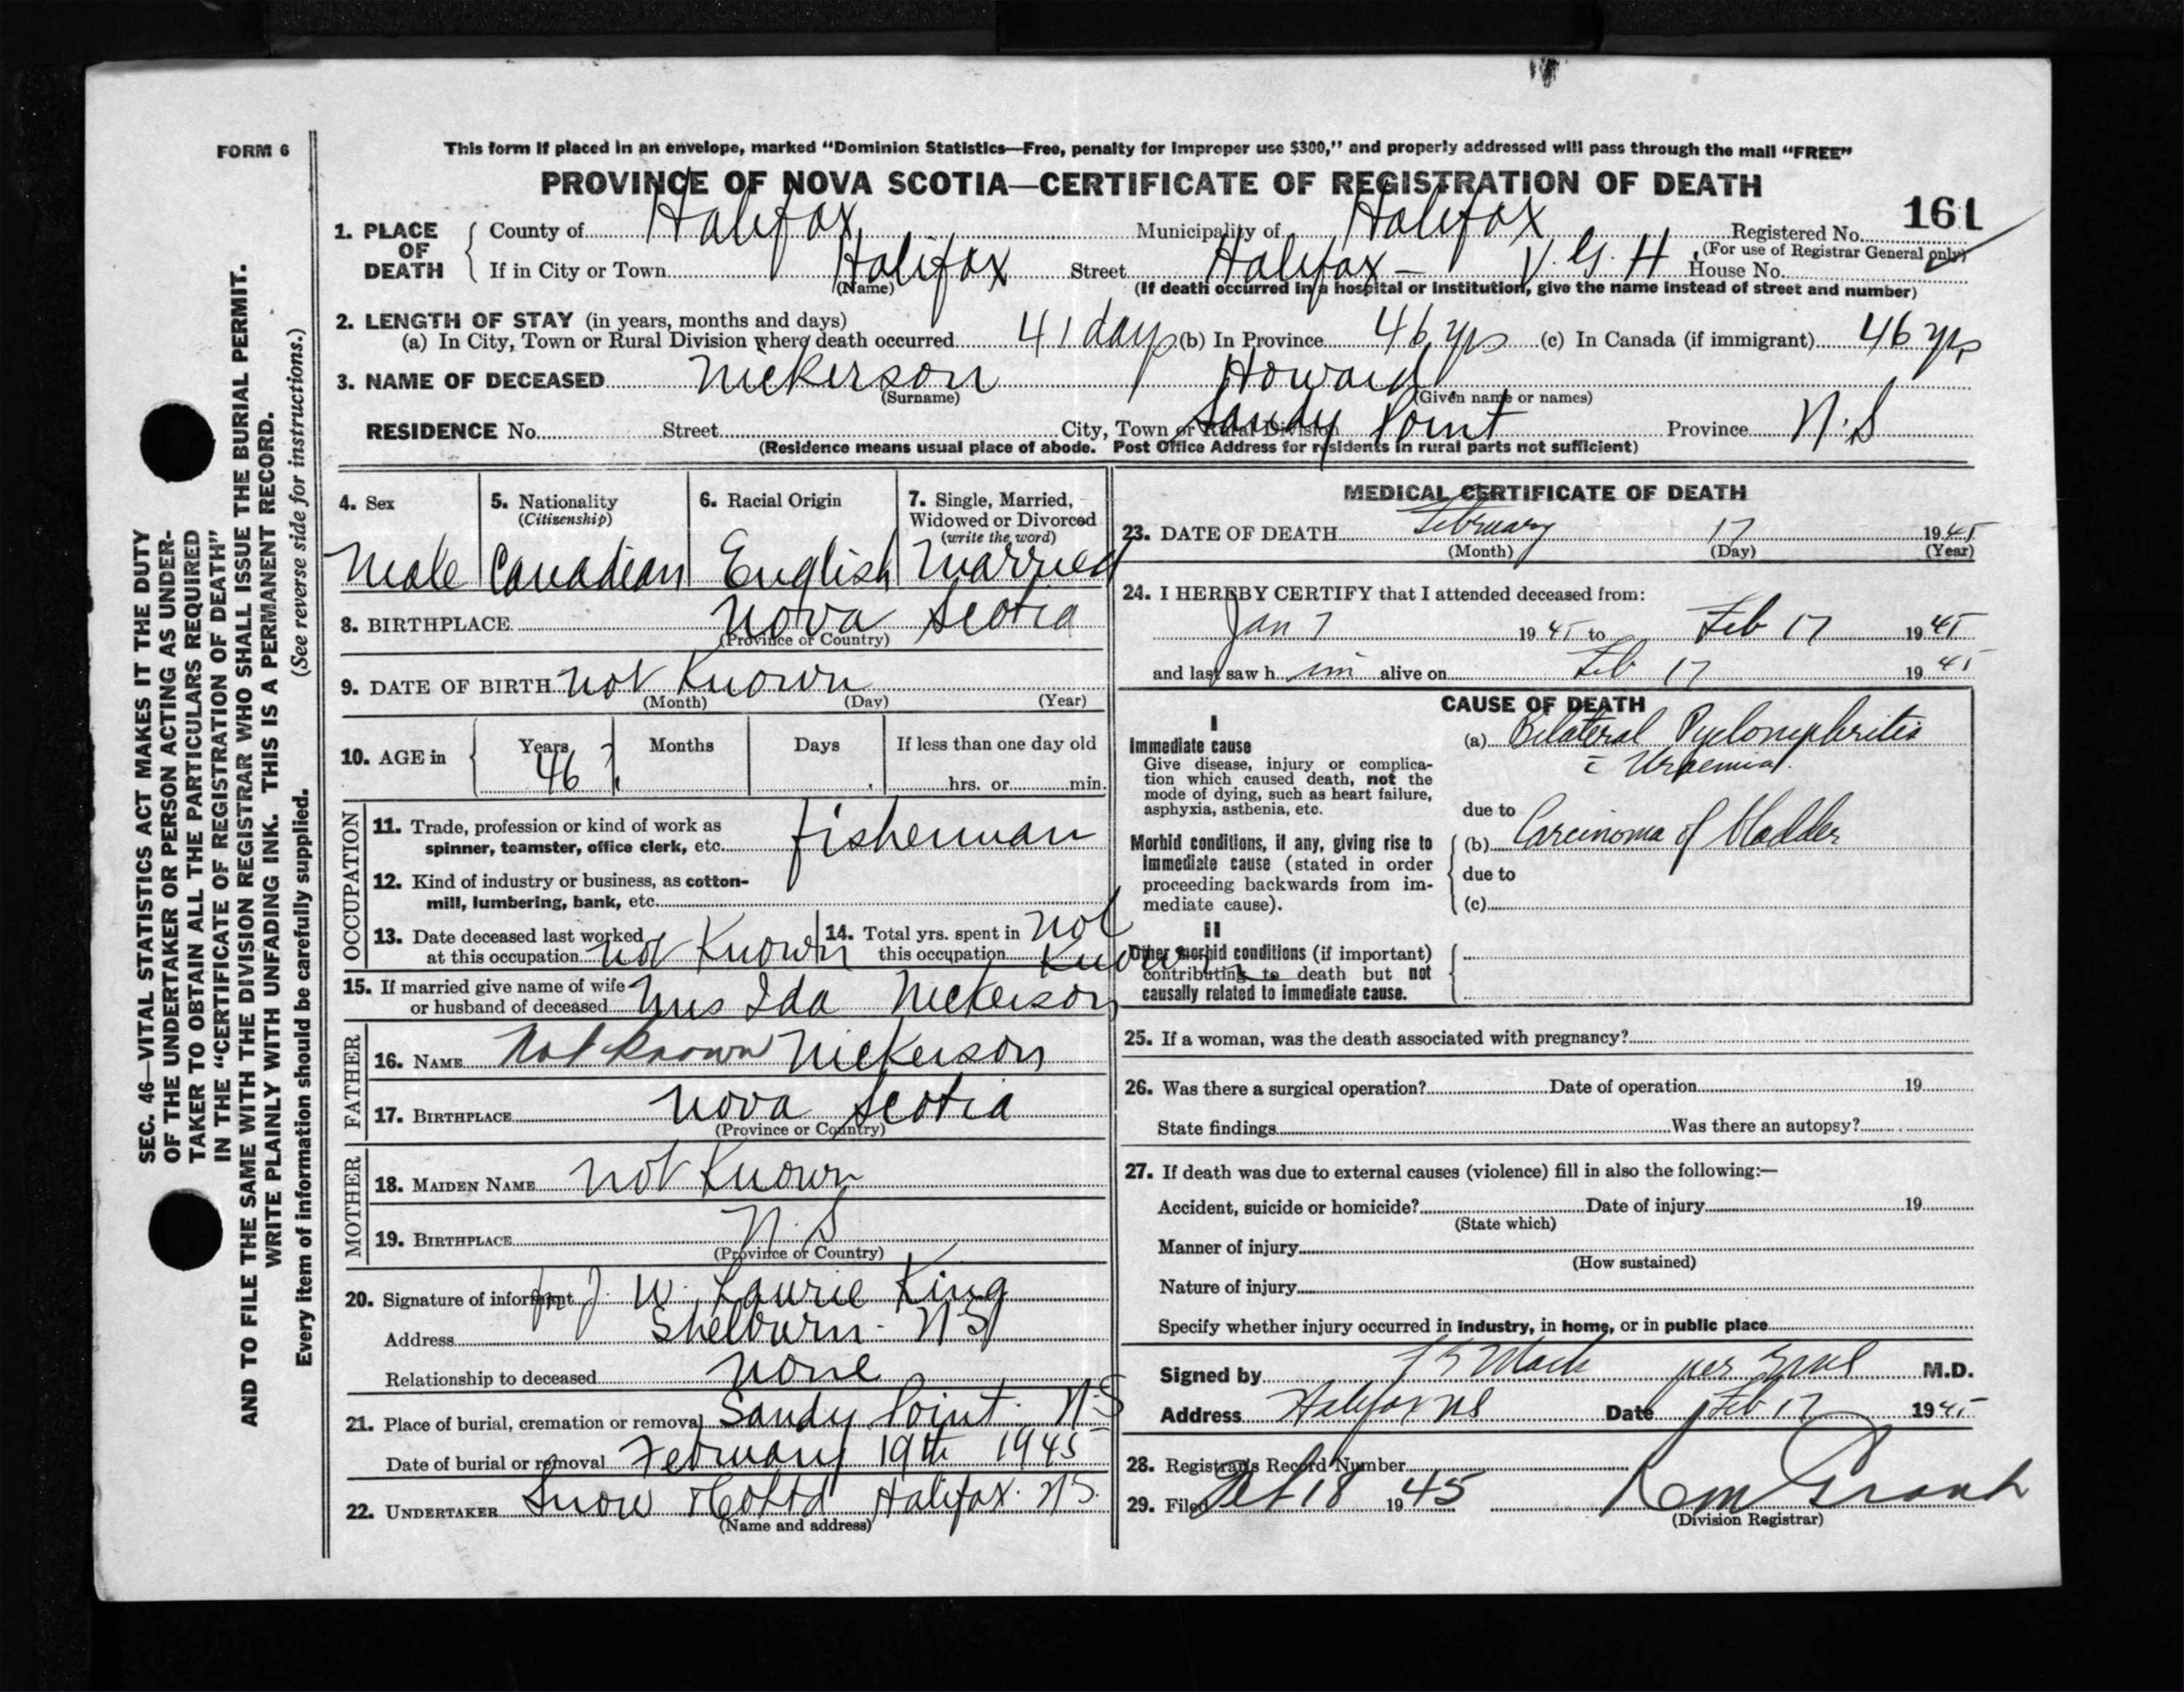 FORM 6
This form if placed in an envelope, marked "Dominion Statistics—Free, penalty for improper use $300," and properly addressed will pass through the mail "FREE"
PROVINCE OF NOVA SCOTIA—CERTIFICATE OF REGISTRATION OF DEATH
161
1. PLACE OF DEATH
County of Halifax Municipality of Halifax Registered No.
(For use of Registrar General only)
If in City or Town Halifax Street Halifax - V. G. H House No.
(Name) (If death occurred in a hospital or institution, give the name instead of street and number)
2. LENGTH OF STAY (in years, months and days)
(a) In City, Town or Rural Division where death occurred 41 days (b) In Province 46 yrs (c) In Canada (if immigrant) 46 yrs
3. NAME OF DECEASED Nickerson Howard
(Surname) (Given name or names)
RESIDENCE No. Street City, Town or Rural Division Sandy Point Province N.S
(Residence means usual place of abode. Post Office Address for residents in rural parts not sufficient)
4. Sex 5. Nationality (Citizenship) 6. Racial Origin 7. Single, Married, Widowed or Divorced (write the word)
Male Canadian English Married
8. BIRTHPLACE Nova Scotia
(Province or Country)
9. DATE OF BIRTH not Known
(Month) (Day) (Year)
10. AGE in Years Months Days If less than one day old
46 ? hrs. or min.
OCCUPATION
11. Trade, profession or kind of work as
spinner, teamster, office clerk, etc. fisherman
12. Kind of industry or business, as cotton-
mill, lumbering, bank, etc.
13. Date deceased last worked
at this occupation not Known
14. Total yrs. spent in
this occupation not Known
15. If married give name of wife
or husband of deceased Mrs Ida Nickerson
FATHER
16. NAME Not known Nickerson
17. BIRTHPLACE Nova Scotia
(Province or Country)
MOTHER
18. MAIDEN NAME not Known
19. BIRTHPLACE N.S
(Province or Country)
20. Signature of informant J. W. Laurie King
Address Shelburn - NS
Relationship to deceased none
21. Place of burial, cremation or removal Sandy Point. N.S
Date of burial or removal February 19th 1945
22. UNDERTAKER Snow & Co Ltd Halifax. N.S.
(Name and address)
MEDICAL CERTIFICATE OF DEATH
23. DATE OF DEATH February 17 1945
(Month) (Day) (Year)
24. I HEREBY CERTIFY that I attended deceased from:
Jan 7 1945 to Feb 17 1945
and last saw h im alive on Feb 17 1945
CAUSE OF DEATH
I
Immediate cause
Give disease, injury or complica-
tion which caused death, not the
mode of dying, such as heart failure,
asphyxia, asthenia, etc.
(a) Bilateral Pyelonephritis
c̄ Uraemia.
due to
Morbid conditions, if any, giving rise to
immediate cause (stated in order
proceeding backwards from im-
mediate cause).
(b) Carcinoma of bladder
due to
(c)
II
Other morbid conditions (if important)
contributing to death but not
causally related to immediate cause.
25. If a woman, was the death associated with pregnancy?
26. Was there a surgical operation? Date of operation 19
State findings Was there an autopsy?
27. If death was due to external causes (violence) fill in also the following:—
Accident, suicide or homicide? Date of injury 19
(State which)
Manner of injury
(How sustained)
Nature of injury
Specify whether injury occurred in industry, in home, or in public place
Signed by Mack per M.D.
Address Halifax NS Date Feb 17 1945
28. Registrar's Record Number
29. Filed Feb 18 1945
(Division Registrar)
SEC. 46—VITAL STATISTICS ACT MAKES IT THE DUTY
OF THE UNDERTAKER OR PERSON ACTING AS UNDER-
TAKER TO OBTAIN ALL THE PARTICULARS REQUIRED
IN THE "CERTIFICATE OF REGISTRATION OF DEATH"
AND TO FILE THE SAME WITH THE DIVISION REGISTRAR WHO SHALL ISSUE THE BURIAL PERMIT.
WRITE PLAINLY WITH UNFADING INK. THIS IS A PERMANENT RECORD.
Every item of information should be carefully supplied. (See reverse side for instructions.)